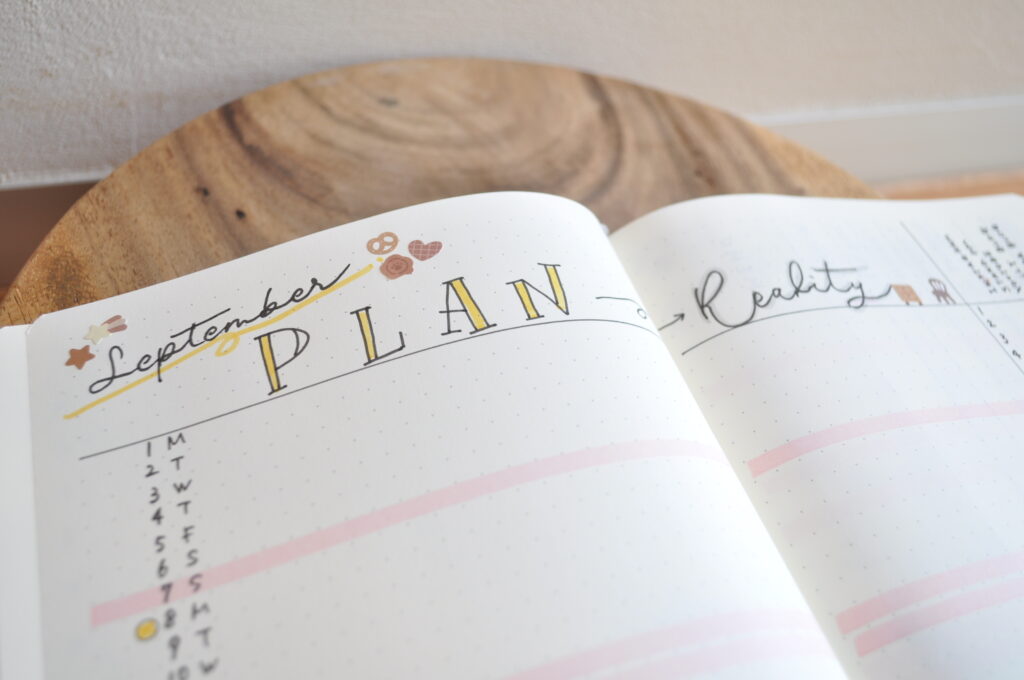 September
PLAN
Reality
1 M
2 T
3 W
4 T
5 F
6 S
7 S
8 M
9 T
10 W
1
2
3
4